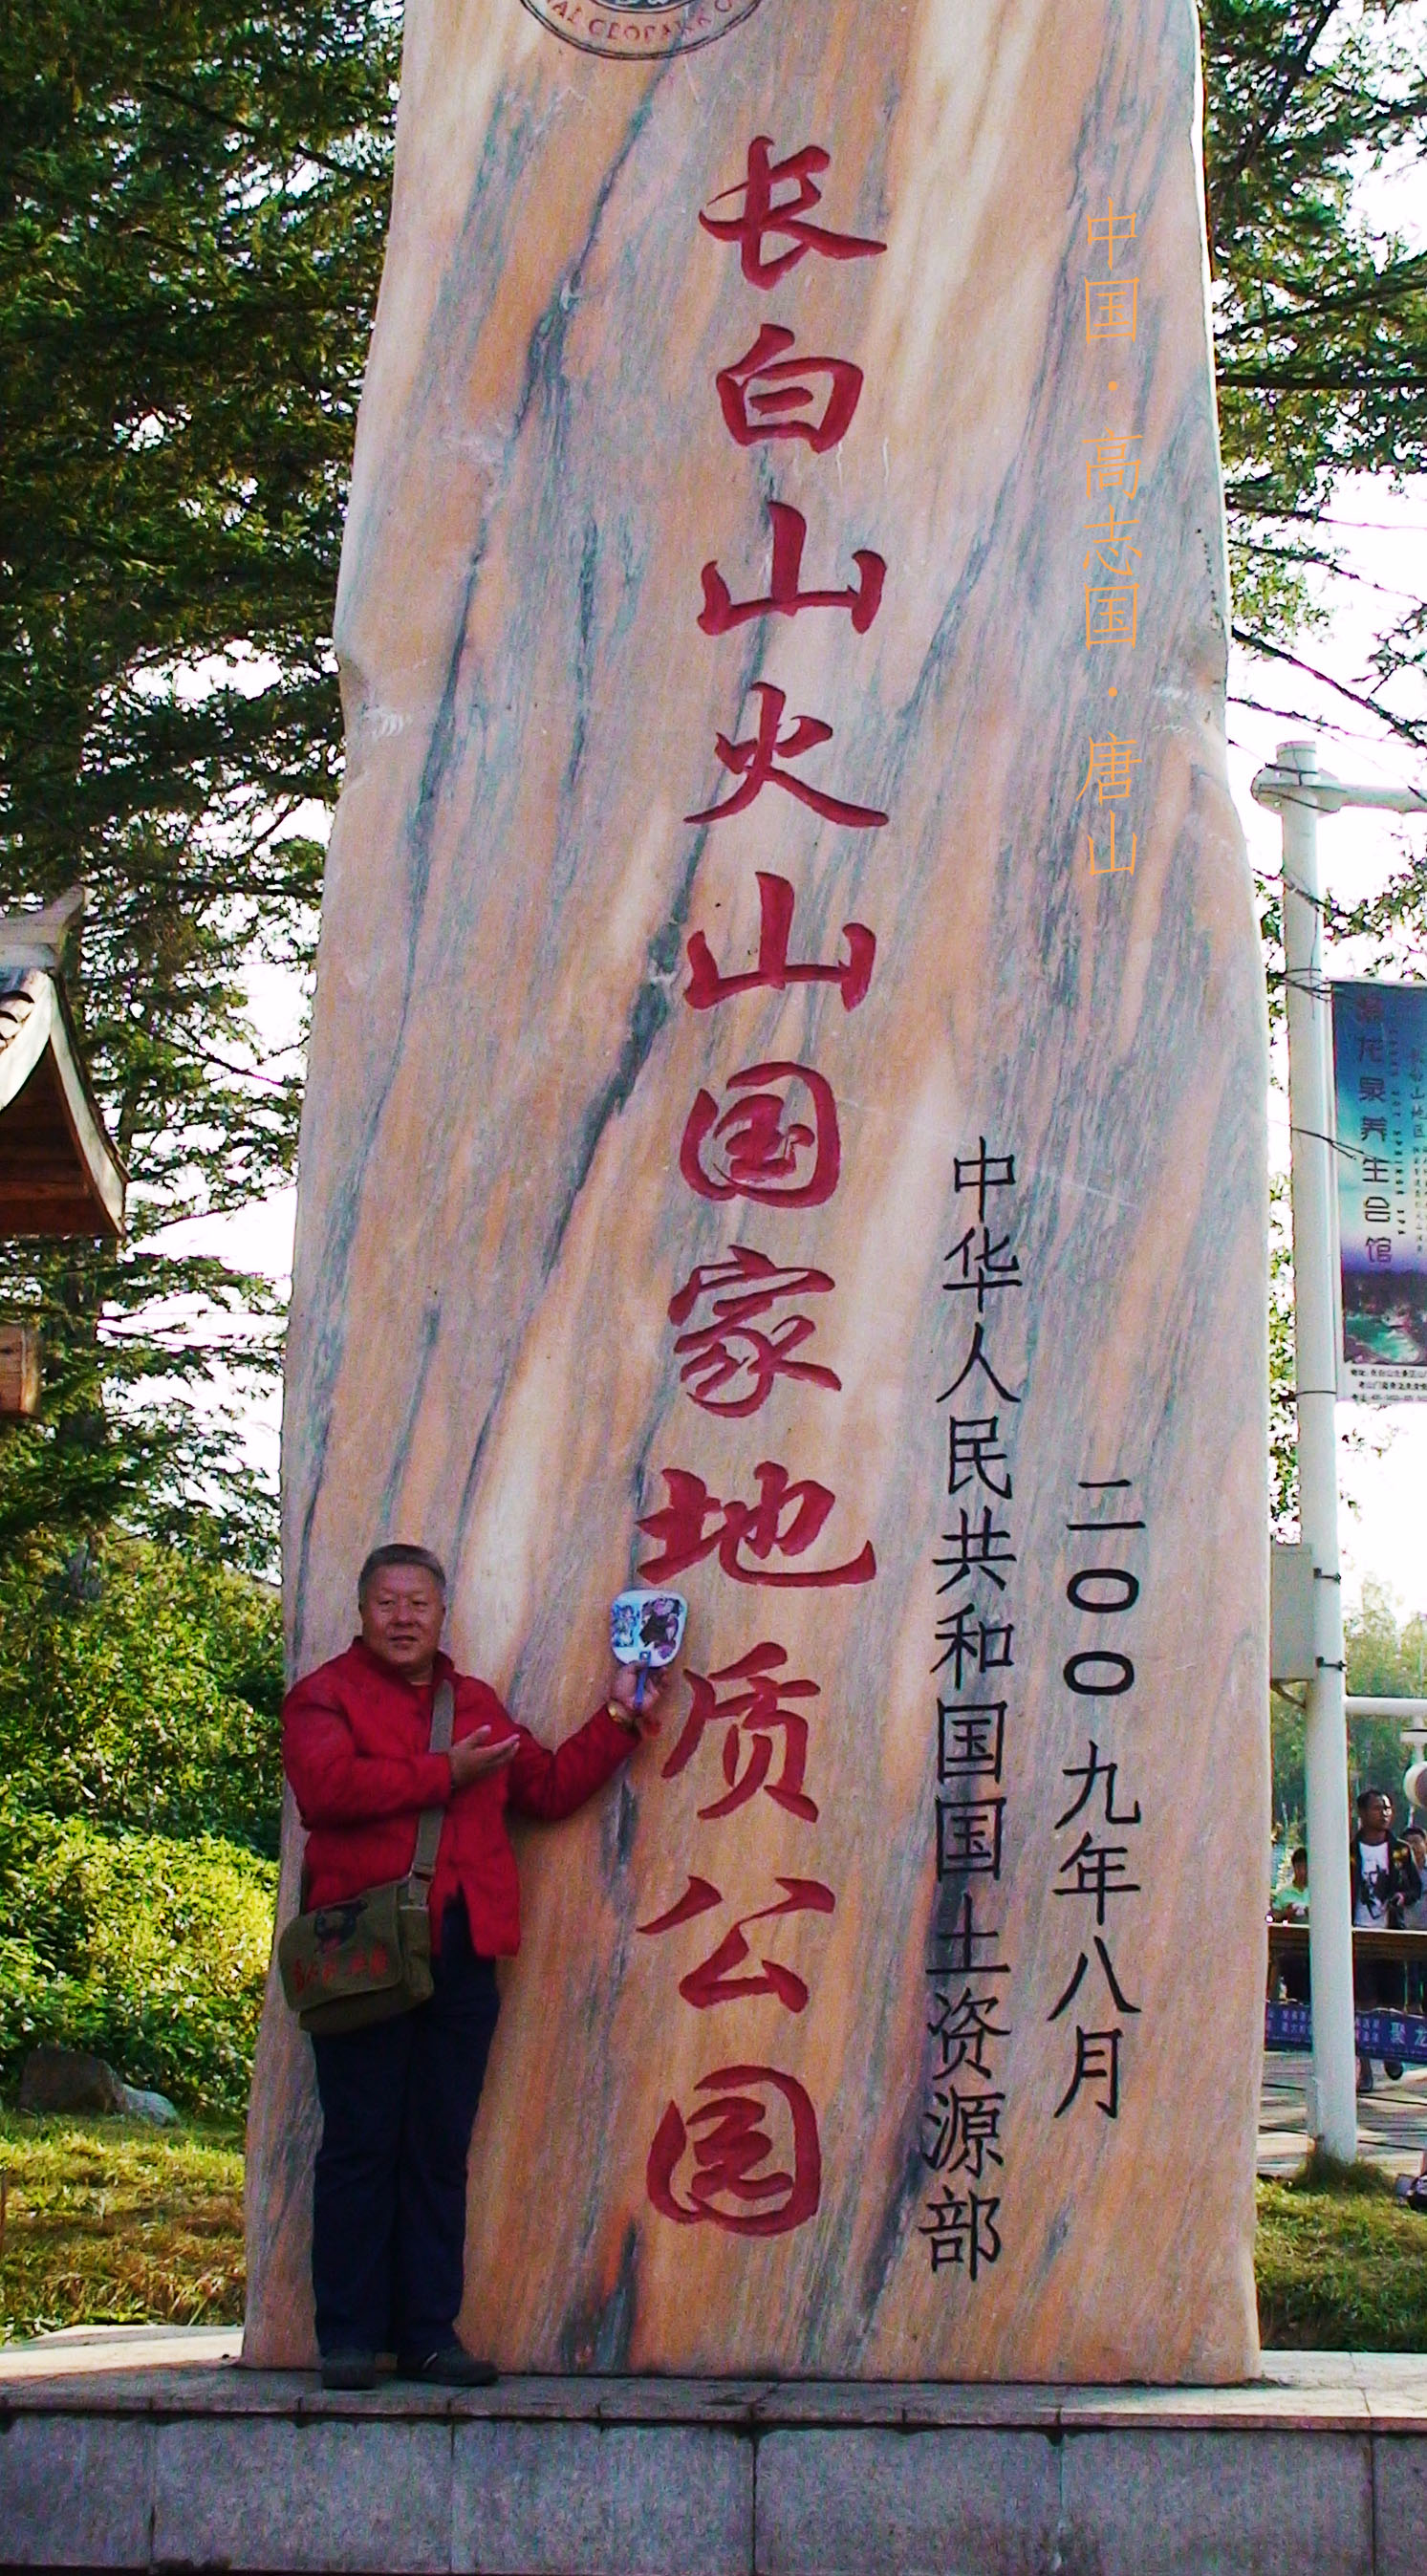 NAL GEOPARK O
长白山火山国家地质公园
中华人民共和国国土资源部
二〇〇九年八月
中国·高志国·唐山
龙泉养生会馆